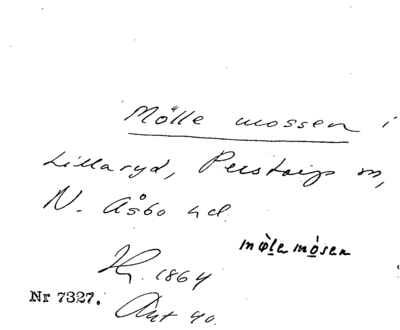 Mölle mossen i
Lillaryd, Perstorps sn,
N. Åsbo hd.
mòle mòsen
1864
Nr 7327.
Ant 40